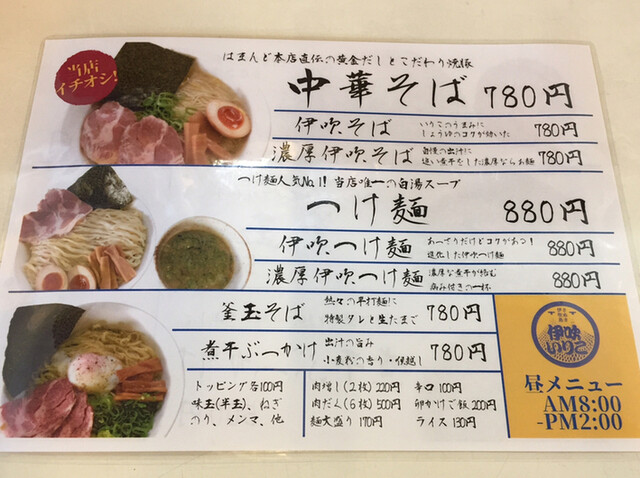 当店
イチオシ!
はまんど本店直伝の黄金だしとこだわり焼豚
中華そば 780円
伊吹そば いりこのうまみに
しょうゆのコクが効いた 780円
濃厚伊吹そば 自慢の出汁に
追い煮干をした濃厚ならお麺 780円
つけ麺人気No.1! 当店唯一の白湯スープ
つけ麺 880円
伊吹つけ麺 あっさりだけどコクがあつ!
進化した伊吹つけ麺 880円
濃厚伊吹つけ麺 濃厚な煮干が絡む
病み付きの一杯 880円
釜玉そば 熱々の平打麺に
特製タレと生たまご 780円
煮干ぶっかけ 出汁の旨み
小麦粉の香り・保越し 780円
トッピング各100円
味玉(半玉)、ねぎ
のり、メンマ、他
肉増し(2枚) 220円
肉だく(6枚) 500円
麺大盛り 170円
辛口 100円
卵かけご飯 200円
ライス 130円
伊吹
いりこ
昼メニュー
AM8:00
-PM2:00